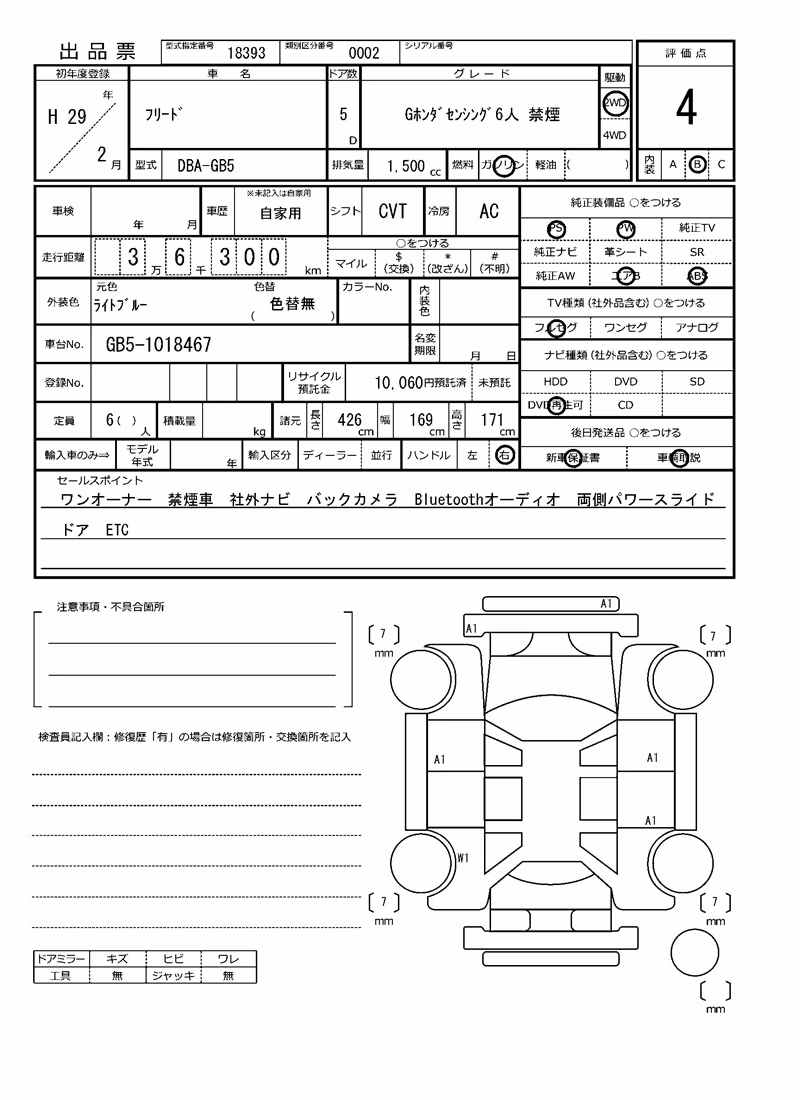 出品票
型式指定番号 18393 類別区分番号 0002 シリアル番号
評価点
4
内装 A B C
初年度登録 車名 ドア数 グレード 駆動
H 29 年 2 月 フリード 5 D Gホンダセンシング6人 禁煙 2WD
4WD
型式 DBA-GB5 排気量 1,500 cc 燃料 ガソリン 軽油 ( )
車検 年 月 車歴 ※未記入は自家用
自家用 シフト CVT 冷房 AC
走行距離 3 万 6 千 3 0 0 km
○をつける
マイル $ (交換) * (改ざん) # (不明)
外装色 元色 ライトブルー 色替 色替無 ( ) カラーNo. 内装色
車台No. GB5-1018467 名変期限 月 日
登録No. リサイクル預託金 10,060円預託済 未預託
定員 6( )人 積載量 kg 諸元 長さ 426 cm 幅 169 cm 高さ 171 cm
輸入車のみ⇒ モデル年式 年 輸入区分 ディーラー 並行 ハンドル 左 右
純正装備品 ○をつける
PS PW 純正TV
純正ナビ 革シート SR
純正AW エアB ABS
TV種類 (社外品含む) ○をつける
フルセグ ワンセグ アナログ
ナビ種類 (社外品含む) ○をつける
HDD DVD SD
DVD再生可 CD
後日発送品 ○をつける
新車保証書 車輌取説
セールスポイント
ワンオーナー 禁煙車 社外ナビ バックカメラ Bluetoothオーディオ 両側パワースライド
ドア ETC
注意事項・不具合箇所
検査員記入欄：修復歴「有」の場合は修復箇所・交換箇所を記入
ドアミラー キズ ヒビ ワレ
工具 無 ジャッキ 無
A1
A1
7 mm
7 mm
A1
A1
A1
W1
7 mm
7 mm
mm